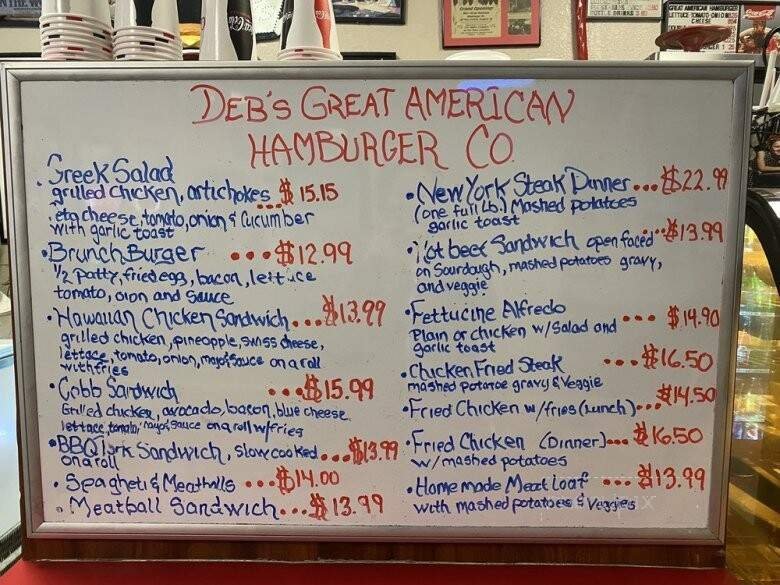 DEB'S GREAT AMERICAN
HAMBURGER CO.
• Greek Salad
grilled chicken, artichokes ... $15.15
eta cheese, tomato, onion & Cucumber
with garlic toast
• Brunch Burger ... $12.99
1/2 patty, fried egg, bacon, lettuce
tomato, oion and sauce
• Hawaiian Chicken Sandwich... $13.99
grilled chicken, pineapple, swiss cheese,
lettace, tomato, onion, mayo, sauce on a roll
with fries
• Cobb Sandwich ... $15.99
Grilled chicken, avocado, bacon, blue cheese
lettace, tomato, mayo, sauce on a roll w/fries
• BBQ Pork Sandwich, slow cooked ... $13.99
on a roll
• Spagheti & Meatballs ... $14.00
• Meatball Sandwich... $13.99
• New York Steak Dinner... $22.99
(one full Lb.) Mashed potatoes
garlic toast
• Hot beef Sandwich open faced ... $13.99
on Sourdough, mashed potatoes gravy,
and veggie
• Fettucine Alfredo ... $14.90
Plain or chicken w/Salad and
garlic toast
• Chicken Fried Steak ... $16.50
mashed potatoe gravy & Veggie
• Fried Chicken w/fries (Lunch)... $14.50
• Fried Chicken (Dinner)... $16.50
w/ mashed potatoes
• Home made Meat Loaf ... $13.99
with mashed potatoes & Veggies
GREAT AMERICAN HAMBURGER
LETTUCE-TOMATO-ONION
CHEESE
Grand Opening
Coca-Cola